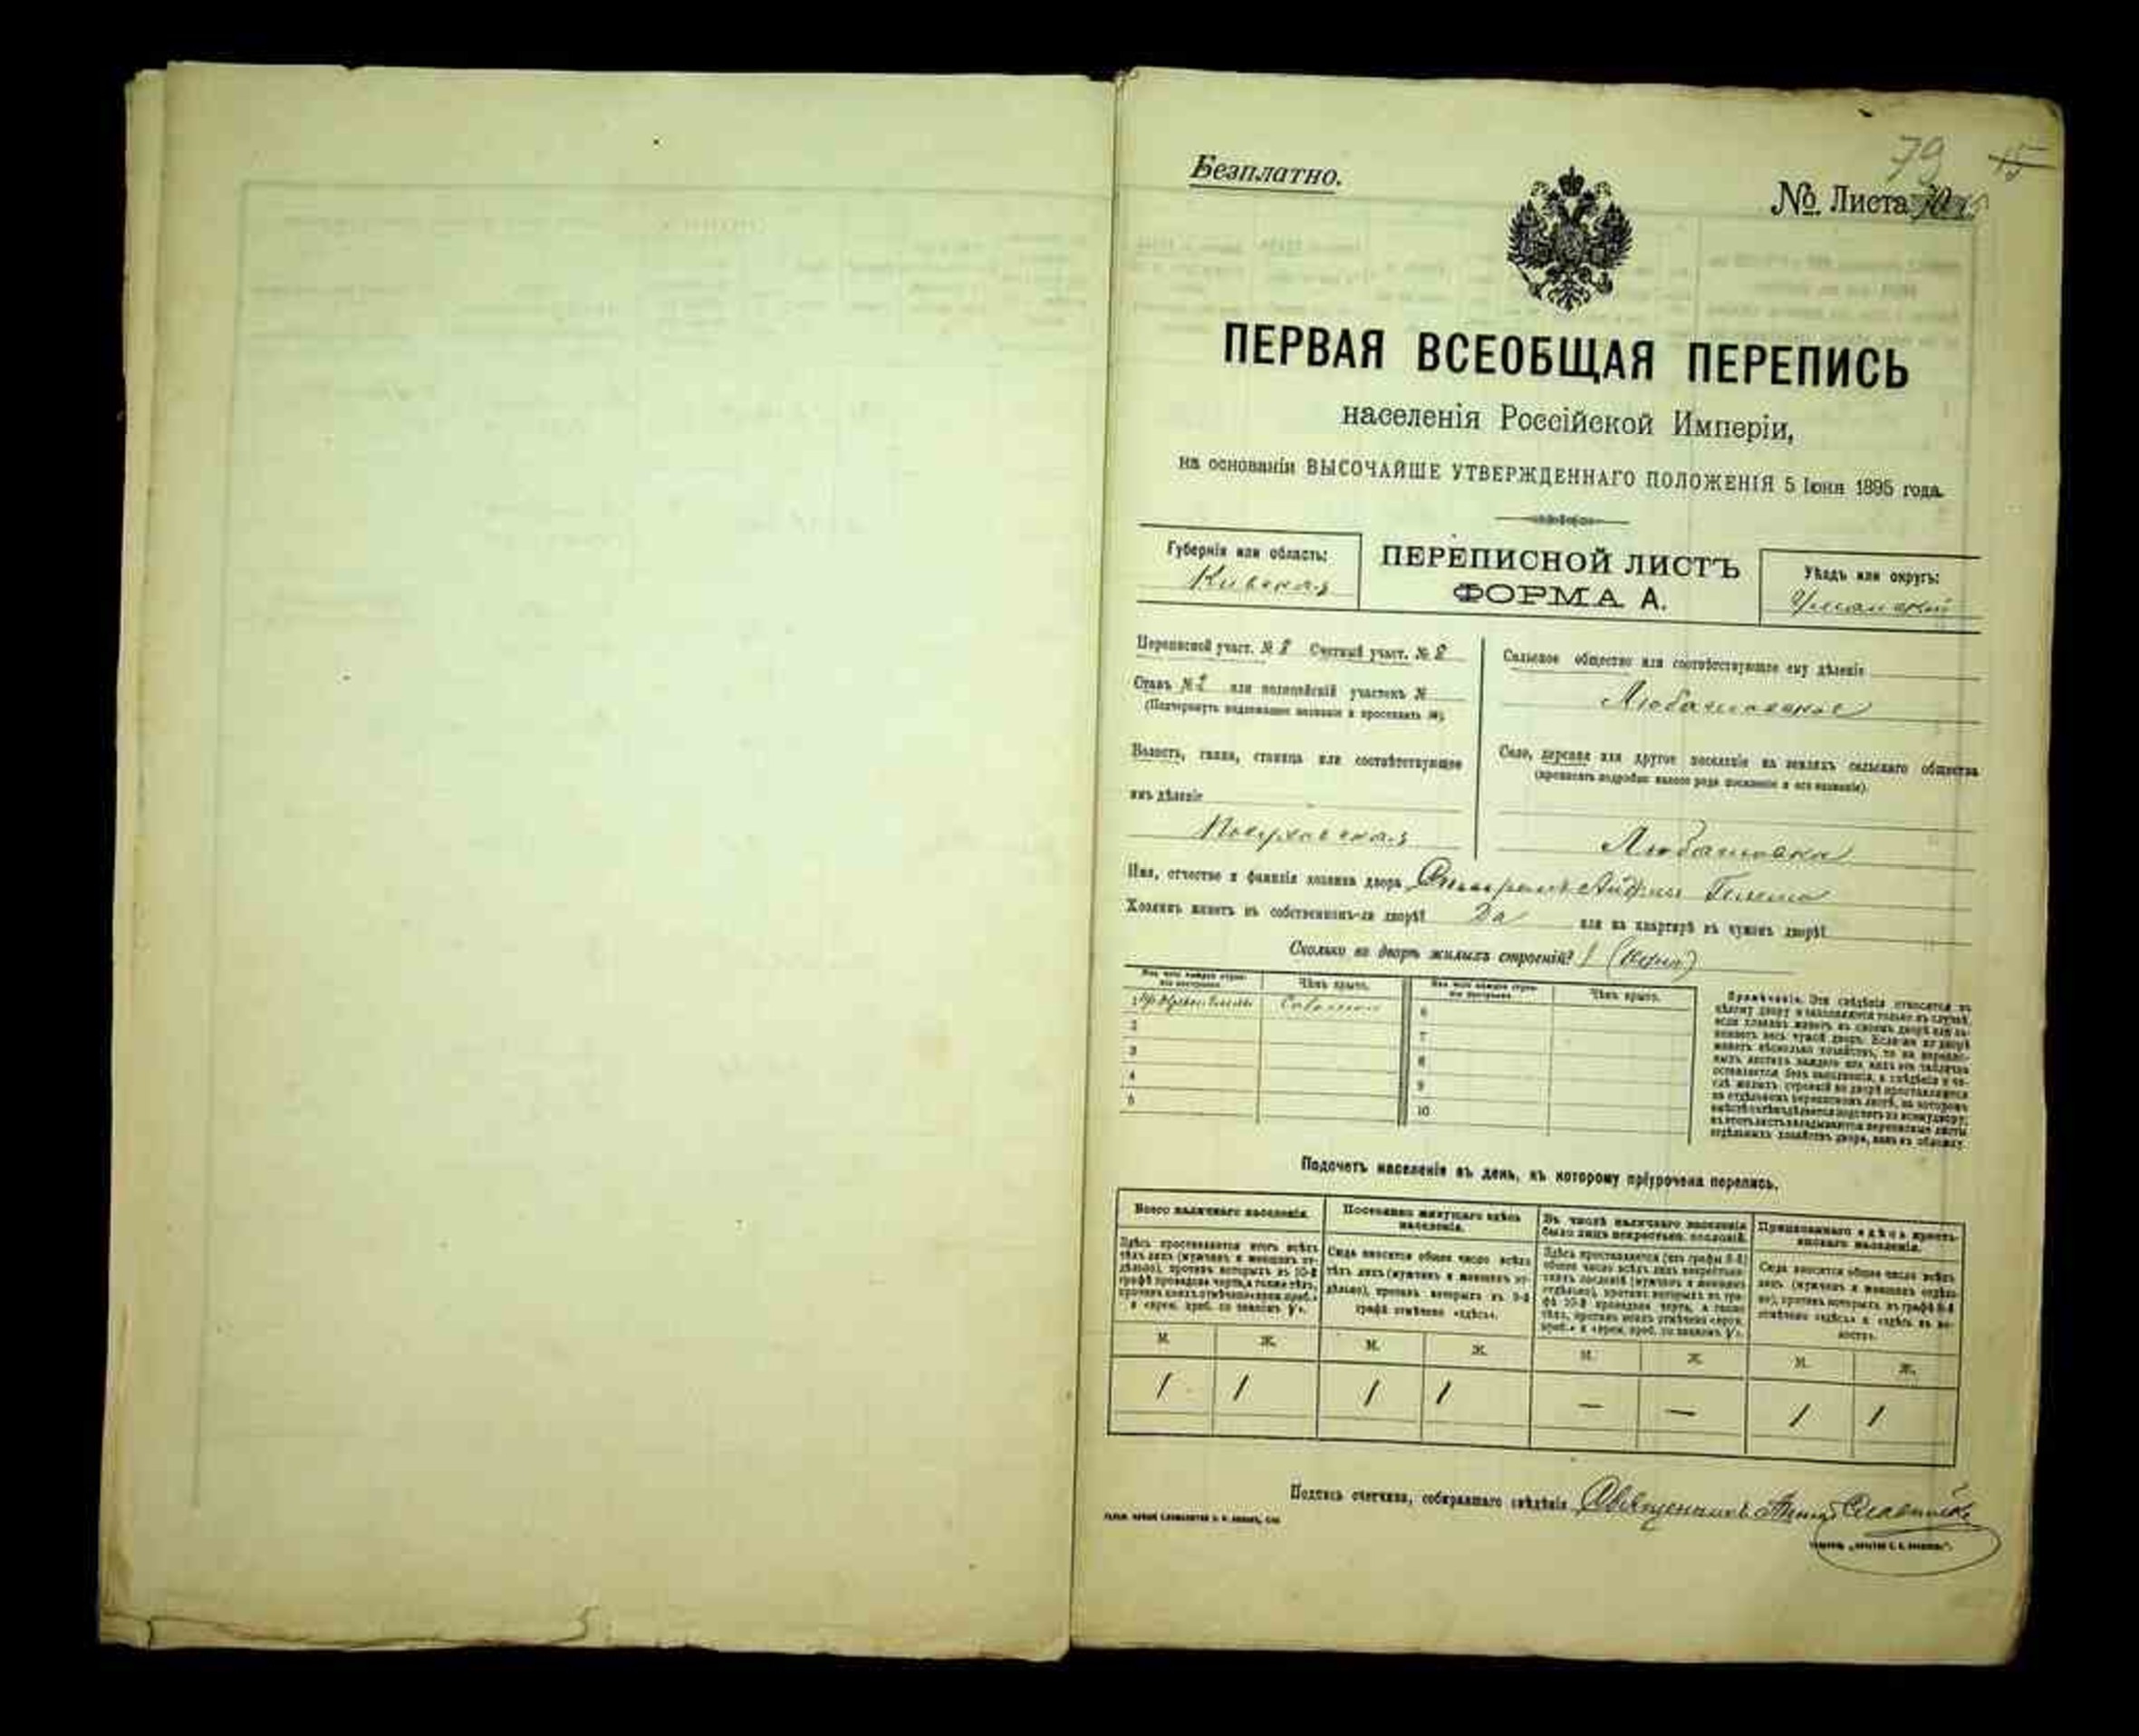 79 15
Безплатно.
№ Листа
ПЕРВАЯ ВСЕОБЩАЯ ПЕРЕПИСЬ
населенія Россійской Имперіи,
на основаніи ВЫСОЧАЙШЕ УТВЕРЖДЕННАГО ПОЛОЖЕНІЯ 5 Іюня 1895 года.
Губернія или область:
Киевская
ПЕРЕПИСНОЙ ЛИСТЪ
ФОРМА А.
Уѣздъ или округъ:
Уманский
Переписной участ. № 2 Счетный участ. № 2
Станъ № 2 или полицейскій участокъ №
(Подчеркнуть надлежащее названіе и проставить №)
Волость, гмина, станица или соотвѣтствующее
имъ дѣленіе
Сельское общество или соотвѣтствующее ему дѣленіе
Любашовское
Село, деревня или другое поселеніе на земляхъ сельскаго общества
(прописать подробно какого рода поселеніе и его названіе).
Любашовка
Имя, отчество и фамилія хозяина двора
Хозяинъ живетъ въ собственномъ-ли дворѣ? Да или на квартирѣ въ чужомъ дворѣ?
Сколько во дворѣ жилыхъ строеній? 1
Изъ чего каждое строеніе построено. Чѣмъ крыто. Изъ чего каждое строеніе построено. Чѣмъ крыто.
1 Соломою 6
2 7
3 8
4 9
5 10
Примѣчаніе. Эти свѣдѣнія относятся къ
цѣлому двору и заполняются только въ случаѣ,
если хозяинъ живетъ въ своемъ дворѣ или за-
нимаетъ весь чужой дворъ. Если же во дворѣ
живетъ нѣсколько хозяйствъ, то на перепис-
ныхъ листахъ каждаго изъ нихъ эта табличка
оставляется безъ заполненія, а свѣдѣнія о чи-
слѣ жилыхъ строеній во дворѣ проставляются
на отдѣльномъ переписномъ листѣ, на которомъ
отдѣльныхъ хозяйствъ двора, какъ въ обложку.
Подсчетъ населенія въ день, къ которому пріурочена перепись.
Всего наличнаго населенія.
Здѣсь проставляется итогъ всѣхъ
тѣхъ лицъ (мужчинъ и женщинъ от-
дѣльно), противъ которыхъ въ 10-й
графѣ проведена черта, а также тѣхъ,
противъ коихъ отмѣчено «врем. преб.»
Постоянно живущаго здѣсь
населенія.
Сюда вносится общее число всѣхъ
тѣхъ лицъ (мужчинъ и женщинъ от-
дѣльно), противъ которыхъ въ 9-й
графѣ отмѣчено «здѣсь».
Въ числѣ наличнаго населенія
было лицъ некрестьянск. сословій.
Здѣсь проставляется (изъ графы 8-й)
общее число всѣхъ лицъ некрестьян-
скихъ сословій (мужчинъ и женщинъ
отдѣльно), противъ которыхъ въ гра-
фѣ 10-й проведена черта, а также
тѣхъ, противъ коихъ отмѣчено «врем.
Приписаннаго здѣсь кресть-
янскаго населенія.
Сюда вносится общее число всѣхъ
лицъ (мужчинъ и женщинъ отдѣль-
но), противъ которыхъ въ графѣ 8-й
отмѣчено «здѣсь» и «здѣсь въ во-
лости».
М. Ж. М. Ж. М. Ж. М. Ж.
1 1 1 1 — — 1 1
Подпись счетчика, собиравшаго свѣдѣнія Священникъ